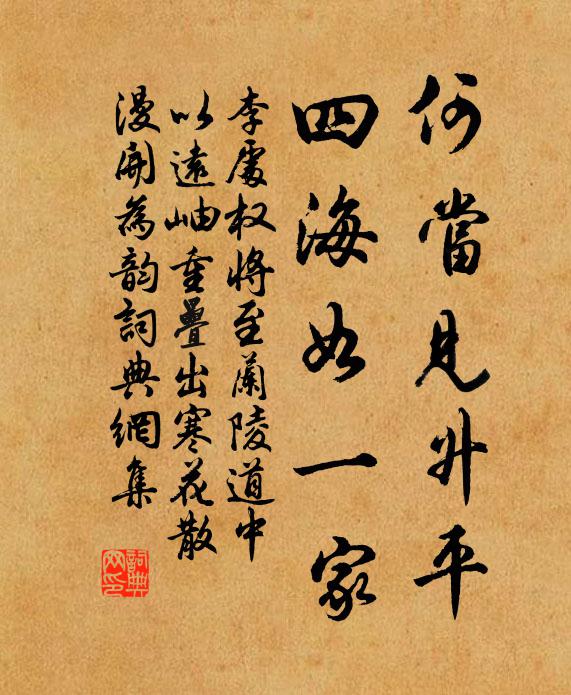 何當見升平
四海如一家
李處权將至蘭陵道中
以遠岫重疊出寒花散
漫開為韵詞典網集
詞典网印